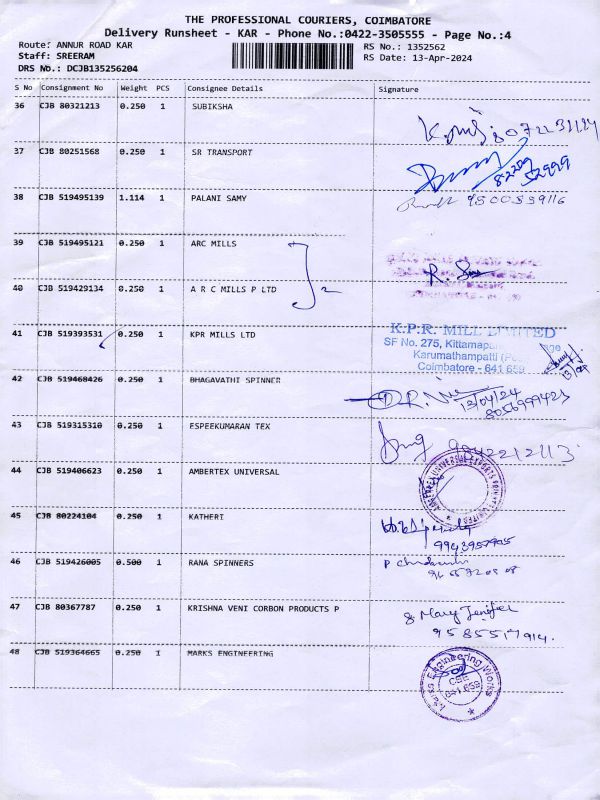 THE PROFESSIONAL COURIERS, COIMBATORE
Delivery Runsheet - KAR - Phone No.:0422-3505555 - Page No.:4
Route: ANNUR ROAD KAR
RS No.: 1352562
Staff: SREERAM
RS Date: 13-Apr-2024
DRS No.: DCJB135256204
S No Consignment No Weight PCS Consignee Details Signature
36 CJB 80321213 0.250 1 SUBIKSHA
37 CJB 80251568 0.250 1 SR TRANSPORT
38 CJB 519495139 1.114 1 PALANI SAMY
39 CJB 519495121 0.250 1 ARC MILLS
2
40 CJB 519429134 0.250 1 A R C MILLS P LTD
41 CJB 519393531 0.250 1 KPR MILLS LTD
K.P.R. MILL LIMITED
SF No. 275, Kittampa
Karumathampatti
Coimbatore - 641 659
42 CJB 519468426 0.250 1 BHAGAVATHI SPINNER
13/04/24
8056999423
43 CJB 519315310 0.250 1 ESPEEKUMARAN TEX
44 CJB 519406623 0.250 1 AMBERTEX UNIVERSAL
45 CJB 80224104 0.250 1 KATHERI
46 CJB 519426005 0.500 1 RANA SPINNERS
47 CJB 80367787 0.250 1 KRISHNA VENI CORBON PRODUCTS P
Mary Jenifer
9585517914.
48 CJB 519364665 0.250 1 MARKS ENGINEERING
Marks Engineering Works
CBE
641 659